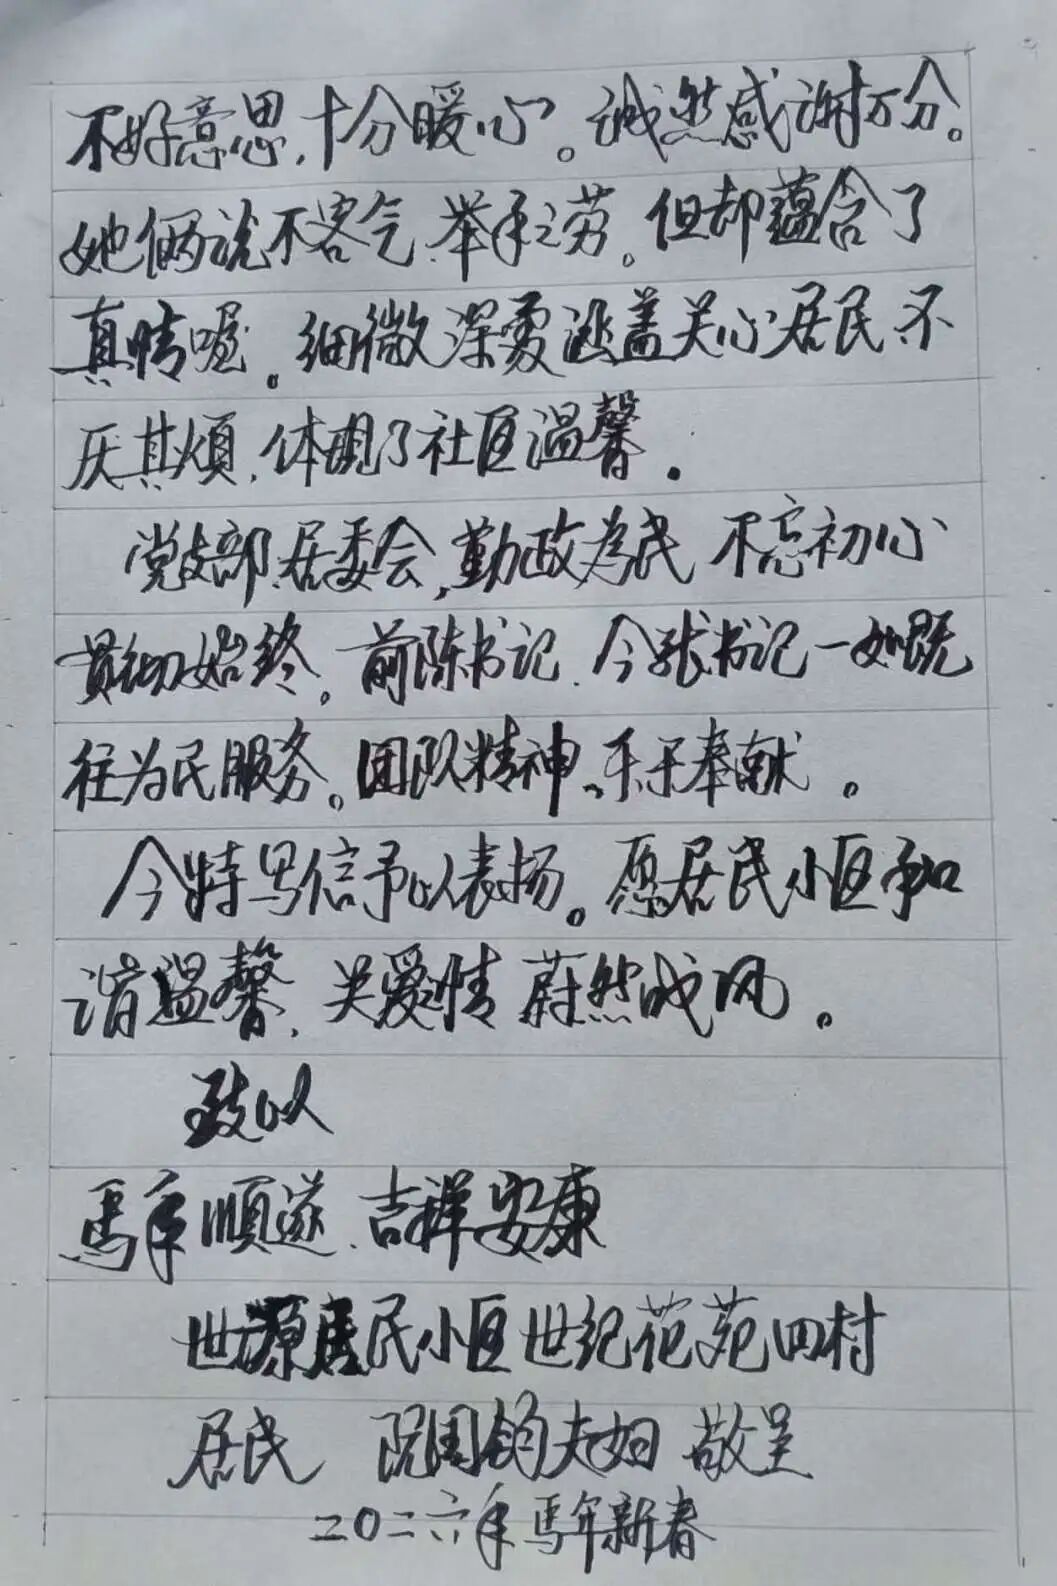 不好意思,十分暖心。诚然感谢万分。
她俩说不客气、举手之劳。但却蕴含了
真情喔。细微深处涵盖关心居民、不
厌其烦,体现了社区温馨。
党支部、居委会,勤政為民 不忘初心
贯彻始终。前陈书记、今张书记一如既
往为民服务。团队精神、乐于奉献。
今特写信予以表扬。愿居民小区和
谐温馨,关爱情 蔚然成风。
致以
馬年順遂、吉祥安康
世源居民小区世纪花苑四村
居民 阮国钧夫妇 敬呈
二〇二六年 馬年新春